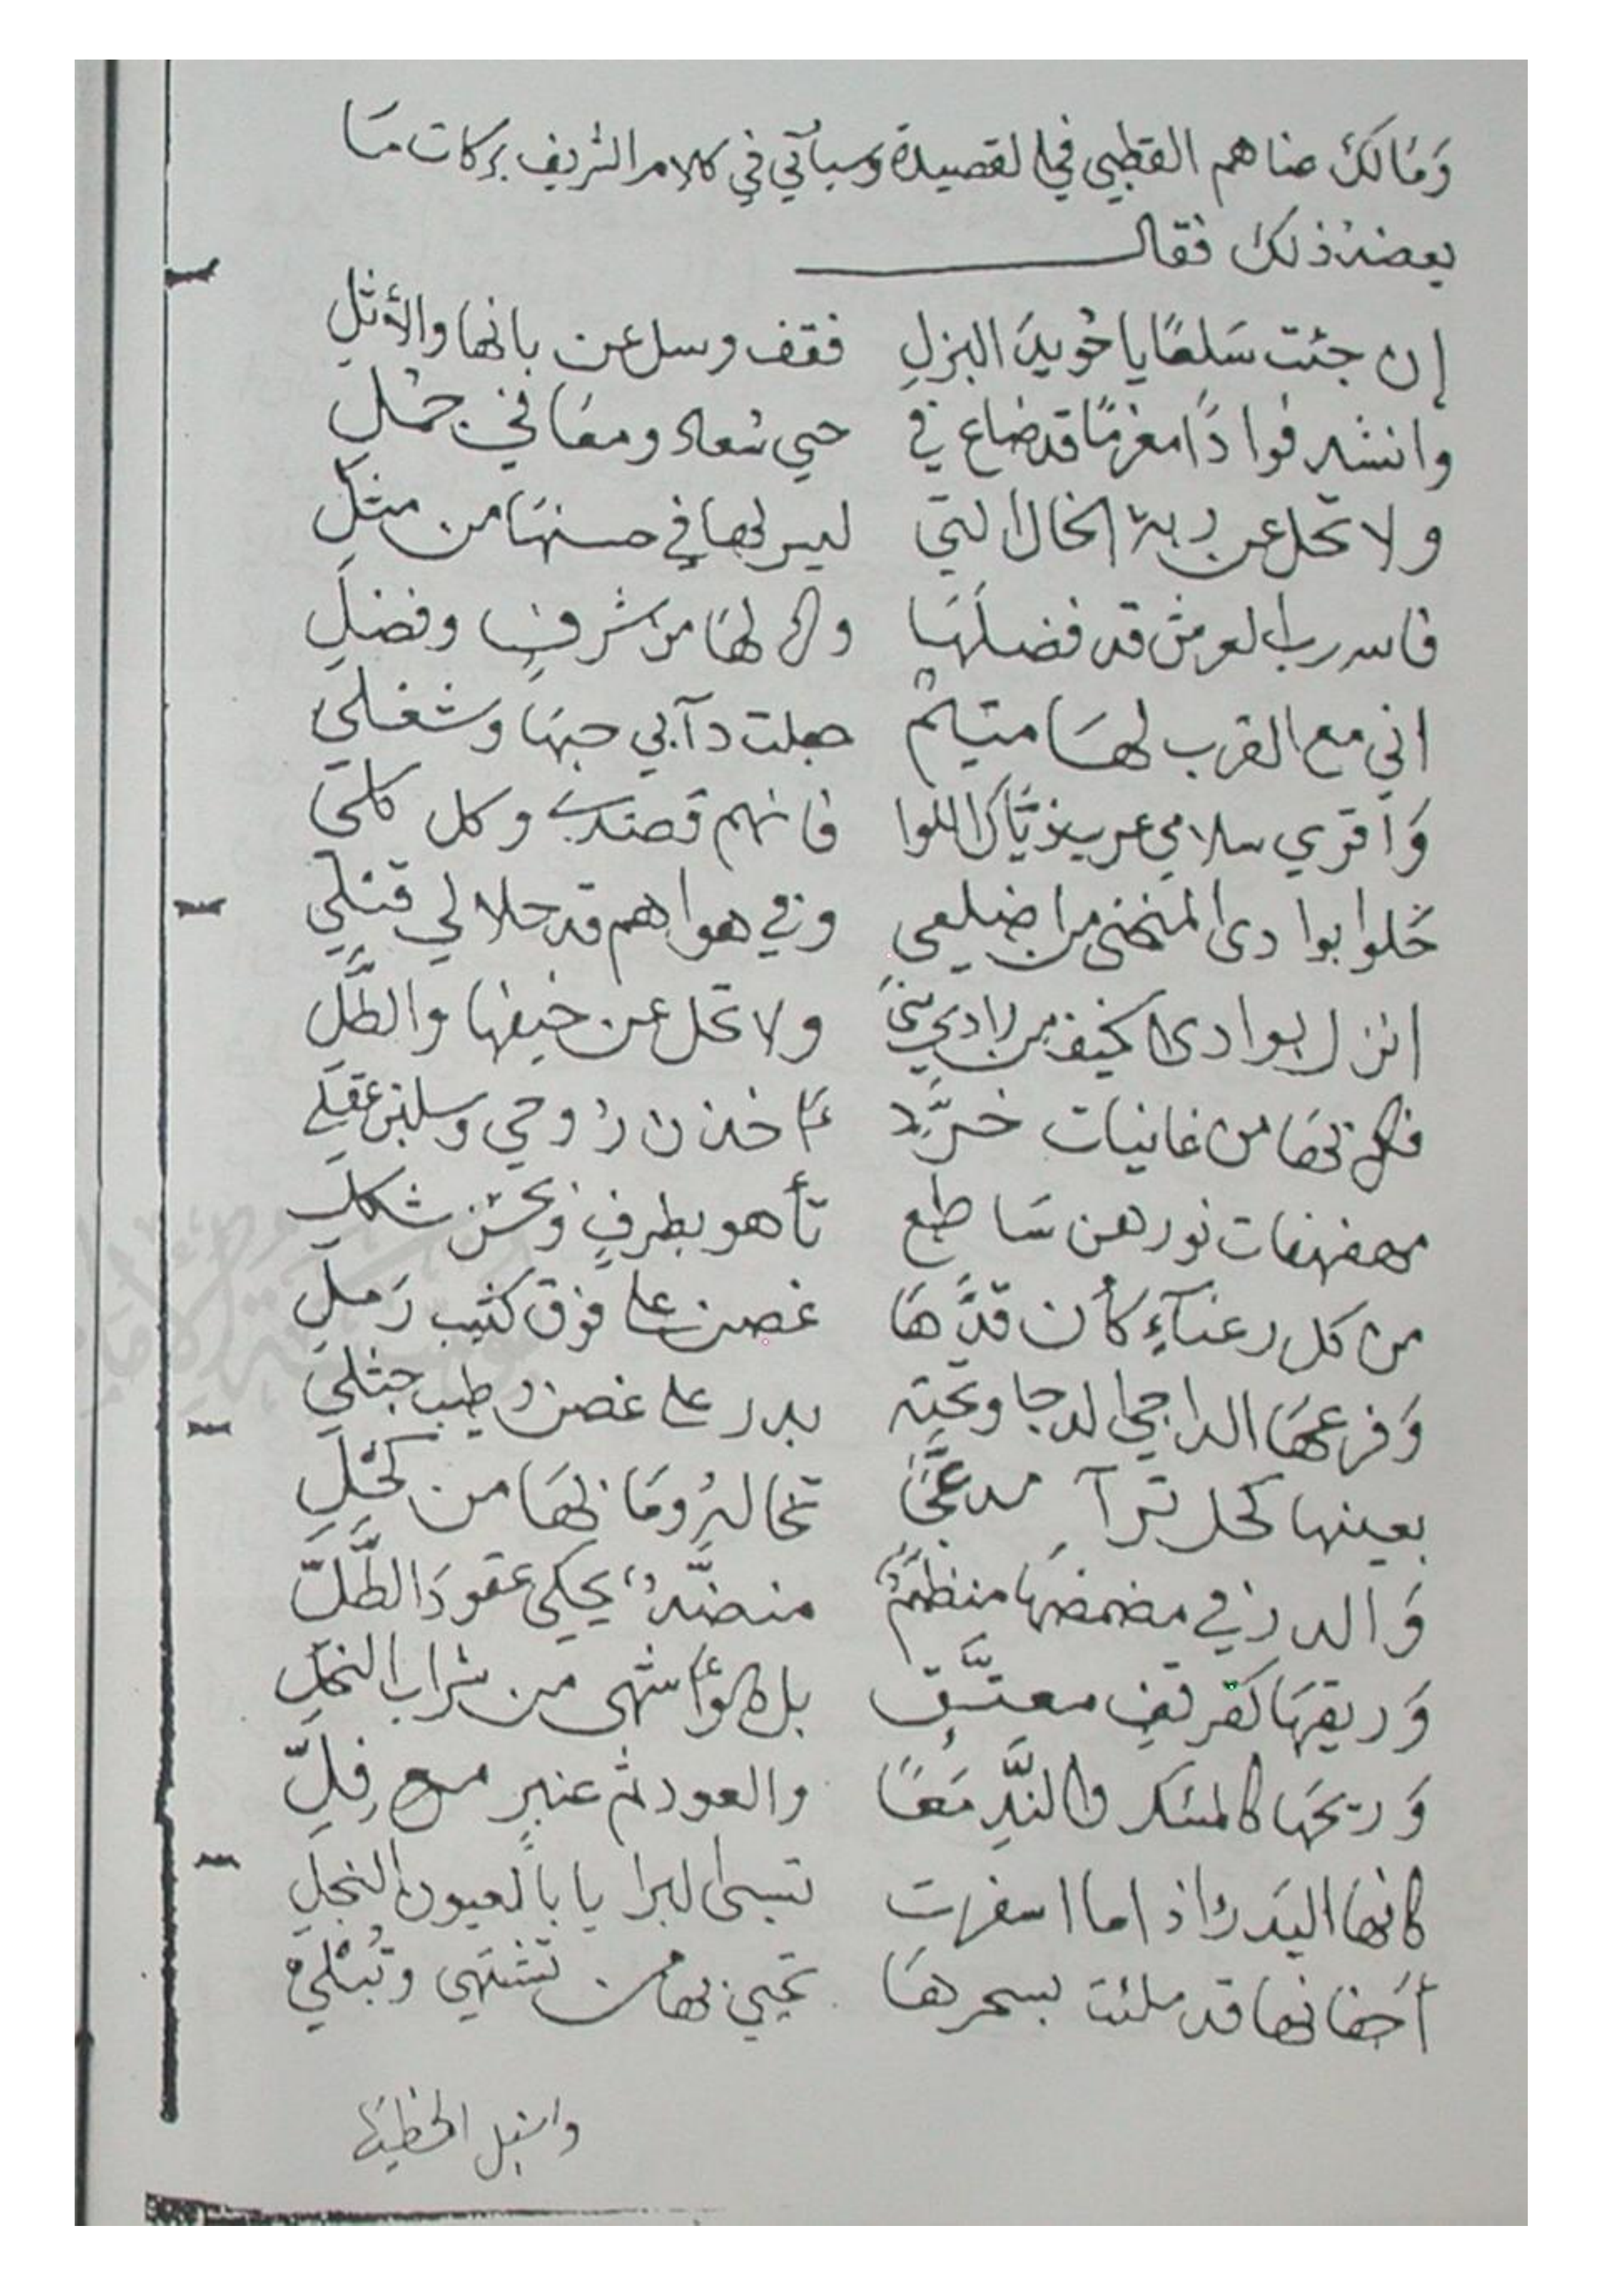 وَمَالكَ عناهم القطبي في القصيدة وسيأتي في كلام الشريف بركات مَا
يعضد ذلك فقال
إن جئت سَلعًا يا حُويدَ البزلِ فقف وسل عن بانها والأثلِ
وانشد فوادًا مغرمًا قد ضاع في حي سُعاد ومغَاني جمْلِ
ولا تحل عن ربة الخال التي ليس لها في حسنهَا من مثلِ
فاسه رب العرش قد فضلَهَا لهَا من شرفٍ وفضلِ
اني مع القرب لهَا متيمٌ جعلت دآبي حبهَا وشغلي
وَأقري سلامي عريب ذيَّاك اللوا فانهم قصدي وكل كلي
حَلوا بوادى المنحنى من اضلعي وفي هواهم قد حلا لي قتلي
انزل بوادى الخيف من وادي منىً ولا تحل عن خيفها والطلِّ
فكم بهَا من غانيات خرَّدٍ أخذن رُوحي وسلبن عقلي
مهفهفات نورهن سَاطع تأهو بطرفٍ وبحسْن شكلِ
من كل رعنآءٍ كأن قدَّهَا غصن على فوق كثيب رَملِ
وَفرعهَا الداجي الدجا وتحته بدر على غصن رطيب جثلي
بعينها كحل ترآ مدعجًا تخاله ومَا بهَا من كحْلِ
وَالدر في مضمضهَا منظمٌ منضّدٌ يحكى عقودَ الطَّلّ
وَريقهَا كقرقفٍ معتَّق بل هو أشهى من شراب النحل
وَريحهَا كالمسَك والنَّدِّ مَعًا والعود ثم عنبرٍ مع فِلِّ
كانها البَدرُ اذا ما اسفرت تسبى البرايا بالعيون النجلِ
أجفانها قد ملئت بسحرهَا تحيي بها من تشتهي وتُبْلي
واسبل